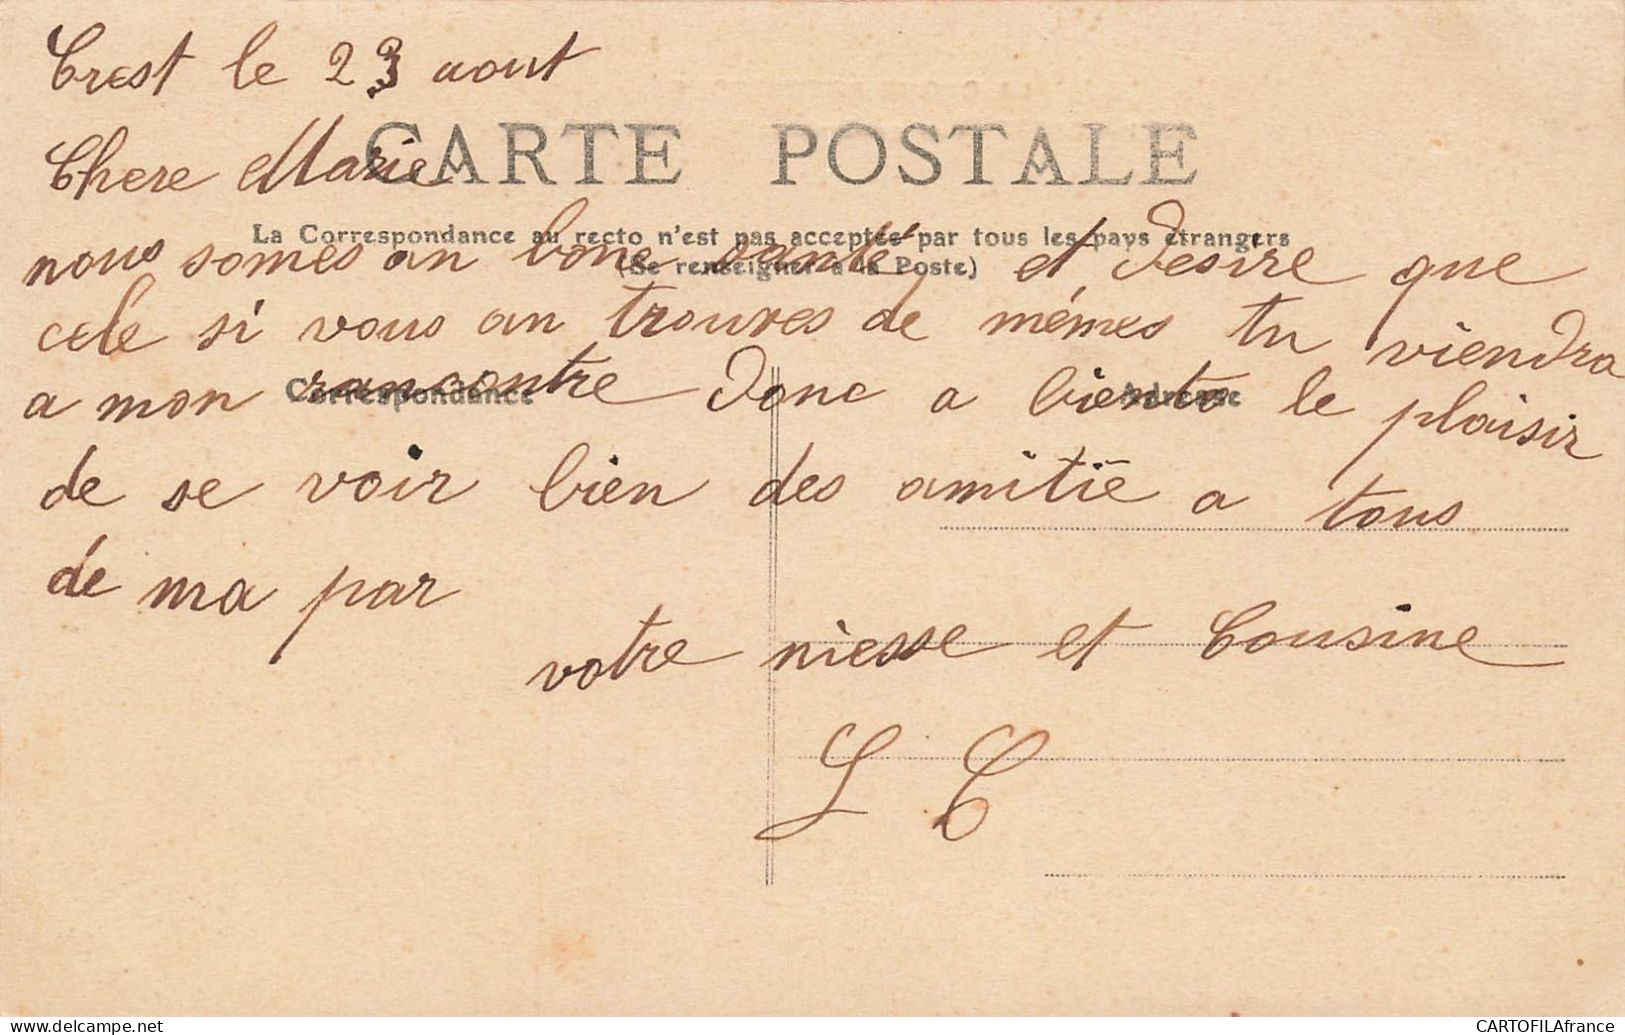 Crest le 23 aout
CARTE POSTALE
Chere Marie
La Correspondance au recto n'est pas acceptée par tous les pays étrangers
(Se renseigner à la Poste)
nous somes an bone santé et desire que
cele si vous an trouves de mémes tu viendra
Correspondance
Adresse
a mon rancontre donc a biento le plaisir
de se voir bien des amitié a tous
de ma par
votre niesse et Cousine
L C
delcampe.net
CARTOFILAfrance